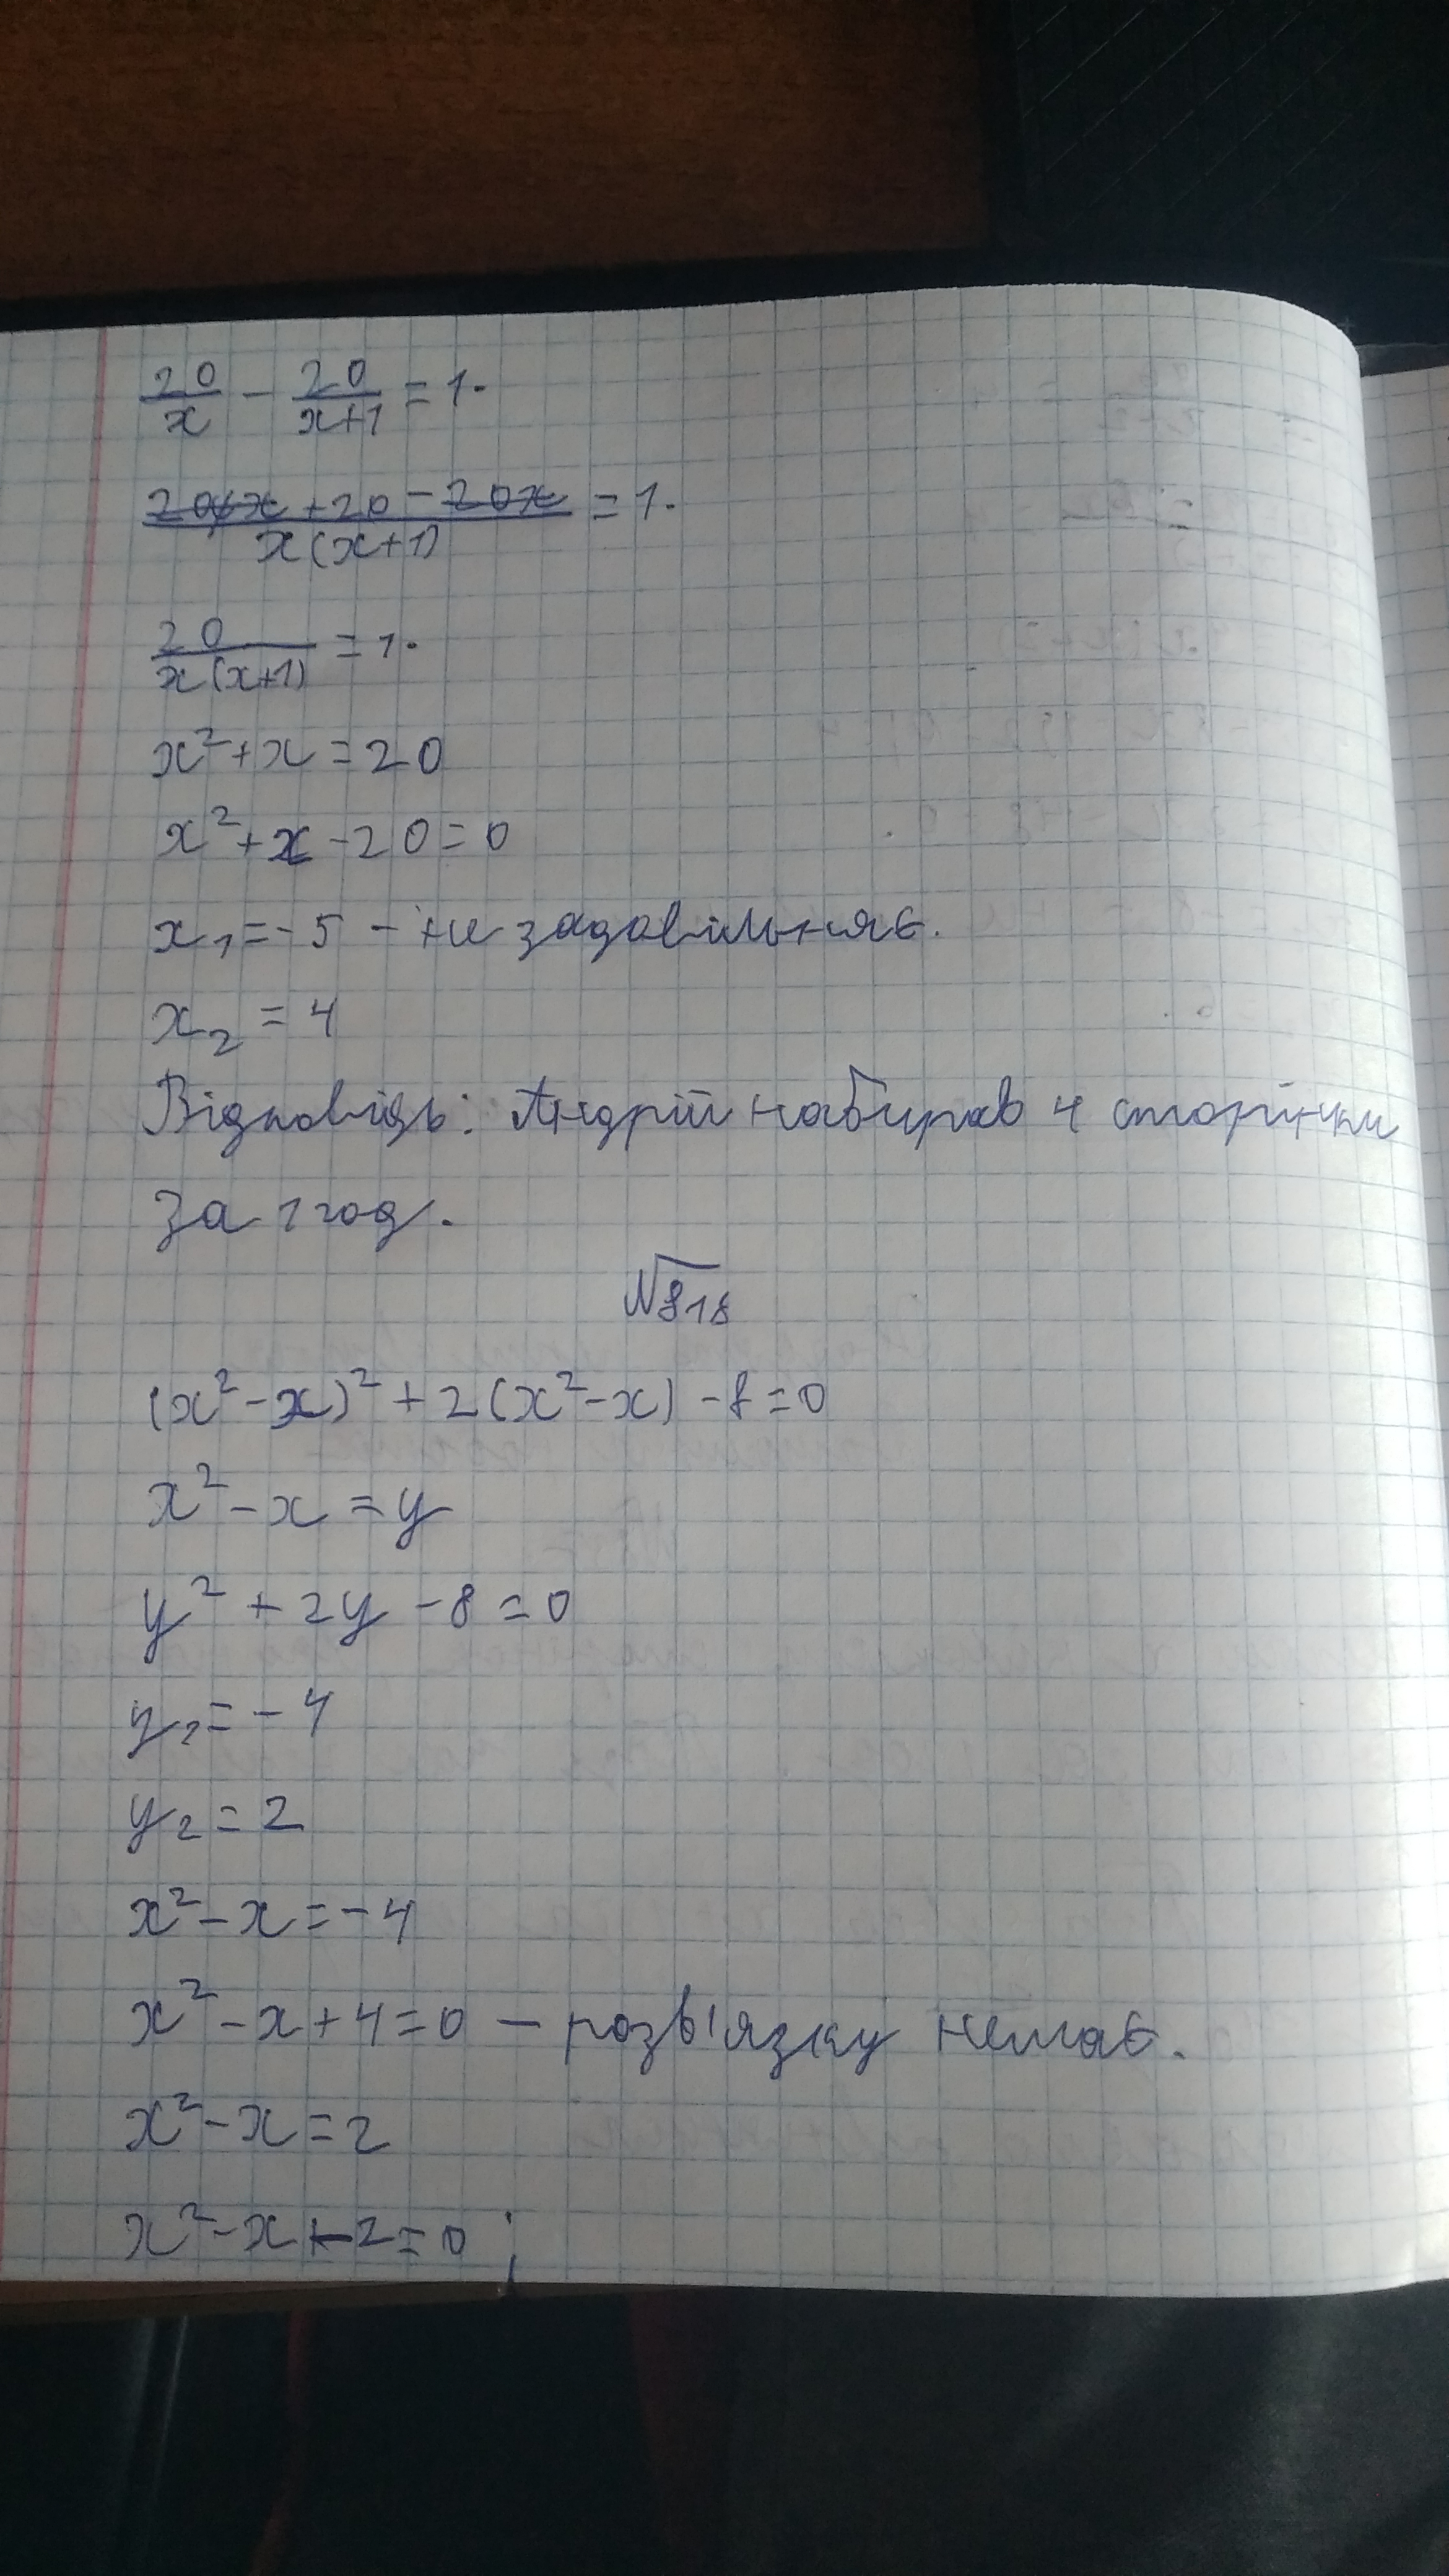 20/x - 20/x+1 = 1.
20x + 20 - 20x / x(x+1) = 1.
20 / x(x+1) = 1.
x² + x = 20
x² + x - 20 = 0
x₁ = -5 - не задовільняє.
x₂ = 4
Відповідь: Андрій набирав 4 сторінки
за 1 год.
№818
(x² - x)² + 2(x² - x) - 8 = 0
x² - x = y
y² + 2y - 8 = 0
y₁ = -4
y₂ = 2
x² - x = -4
x² - x + 4 = 0 - розв'язку немає.
x² - x = 2
x² - x - 2 = 0 ;